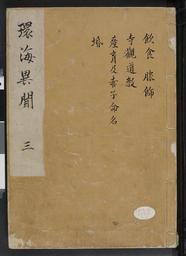 環海異聞 三
飲食 服飾
寺観道教
産育及書子命名